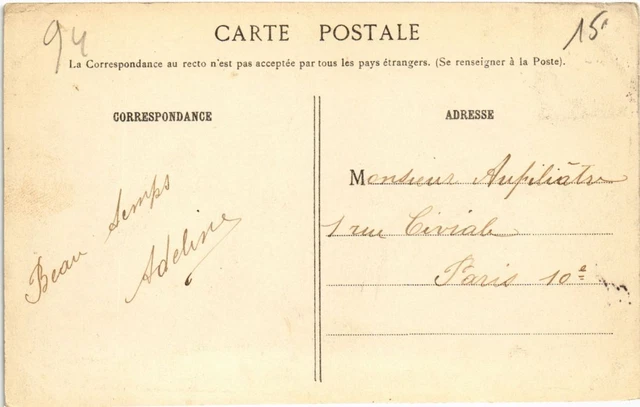 94
15
CARTE POSTALE
La Correspondance au recto n'est pas acceptée par tous les pays étrangers. (Se renseigner à la Poste).
CORRESPONDANCE
Beau temps
Adeline
ADRESSE
Monsieur
1 rue Civiale
Paris 10e